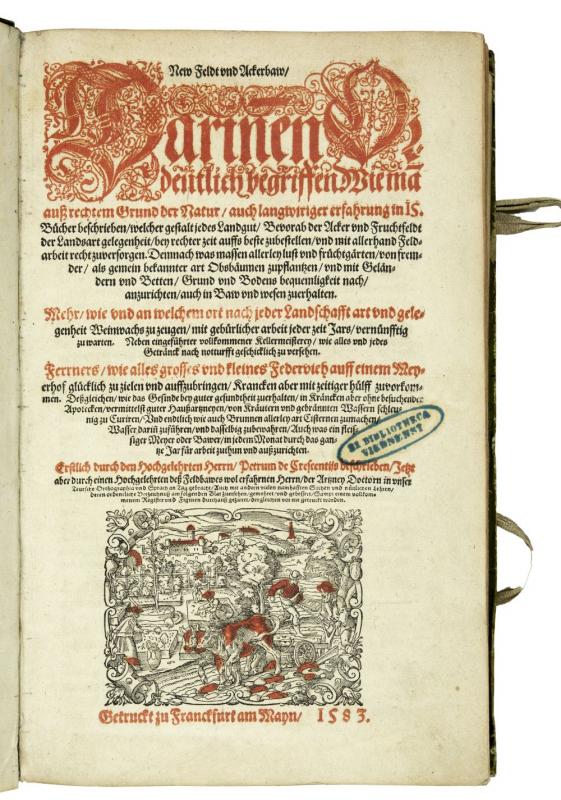 New Feldt vnd Ackerbaw/
Darinen Or⸗
dentlich begriffen Wie mā
auß rechtem Grund der Natur/ auch langwiriger erfahrung in 15.
Bücher beschrieben/welcher gestalt jedes Landgut/ Bevorab der Acker vnd Fruchtfeldt
der Landsart gelegenheit/bey rechter zeit auffs beste zubestellen/vnd mit allerhand Feld⸗
arbeit recht zuversorgen. Demnach was massen allerley lust vnd früchtgärten/von frem⸗
der/ als gemein bekannter art Obsbäumen zupflantzen/ vnd mit Gelän⸗
dern vnd Betten/ Grund vnd Bodens bequemligkeit nach/
anzurichten/auch in Baw vnd wesen zuerhalten.
Mehr/ wie vnd an welchem ort nach jeder Landschafft art vnd gele⸗
genheit Weinwachs zu zeugen/ mit gebürlicher arbeit jeder zeit Jars/ vernünfftig
zu warten. Neben eingeführter volkommener Kellermeisterey/ wie alles vnd jedes
Getränck nach notturfft geschicklich zu versehen.
Ferrners/ wie alles grosses vnd kleines Federvieh auff einem Mey⸗
erhof glücklich zu zielen vnd auffzubringen/ Krancken aber mit zeitiger hülff zuvorkom⸗
men. Deßgleichen/ wie das Gesinde bey guter gesundtheit zuerhalten/ in Kräncken aber ohne besuchender
Apotecken/vermittelst guter Haußartzneyen/ von Kräutern vnd gebrännten Wassern schleu⸗
nig zu Curiren/ Vnd endtlich wie auch Brunnen allerley art Cisternen zumachen/
Wasser darin zuführen/ vnd dasselbig zubewahren/ Auch was ein fleis⸗
siger Meyer oder Bawer/ in jedem Monat durch das gan⸗
tze Jar für arbeit zuthun vnd außzurichten.
Erstlich durch den Hochgelehrten Herrn/ Petrum de Crescentiis beschrieben/ Jetzt
aber durch einen Hochgelehrten deß Feldbawes wol erfahrnen Herrn/ der Artzney Doctorn in vnser
Teutsche Orthographia vnd Sprach an Tag gebracht/ Auch mit andern vielen namhafften Sachen vnd nützlichen Lehren/
deren ordenliche Verzeichnuß am folgenden Blat zuersehen/ gemehret vnd gebessert/ Sampt einem vollkom⸗
menem Register vnd Figuren durchauß gezieret/ dergleichen vor nie getruckt worden.
EX BIBLIOTHECA
VIENNENSI
Getruckt zu Franckfurt am Mayn/ 1583.